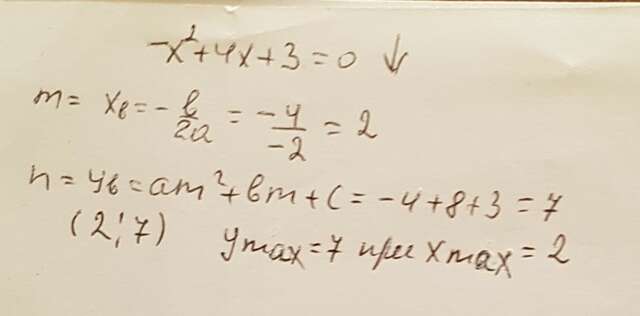 -x²+4x+3=0 ↓
m = xв = -b/2a = -4/-2 = 2
n = yв = am²+bm+c = -4+8+3 = 7
(2;7) ymax=7 при xmax=2